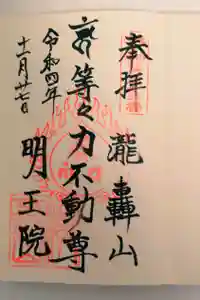 奉拝
瀧轟山
等々力不動尊
令和四年
十一月廿七日
明王院